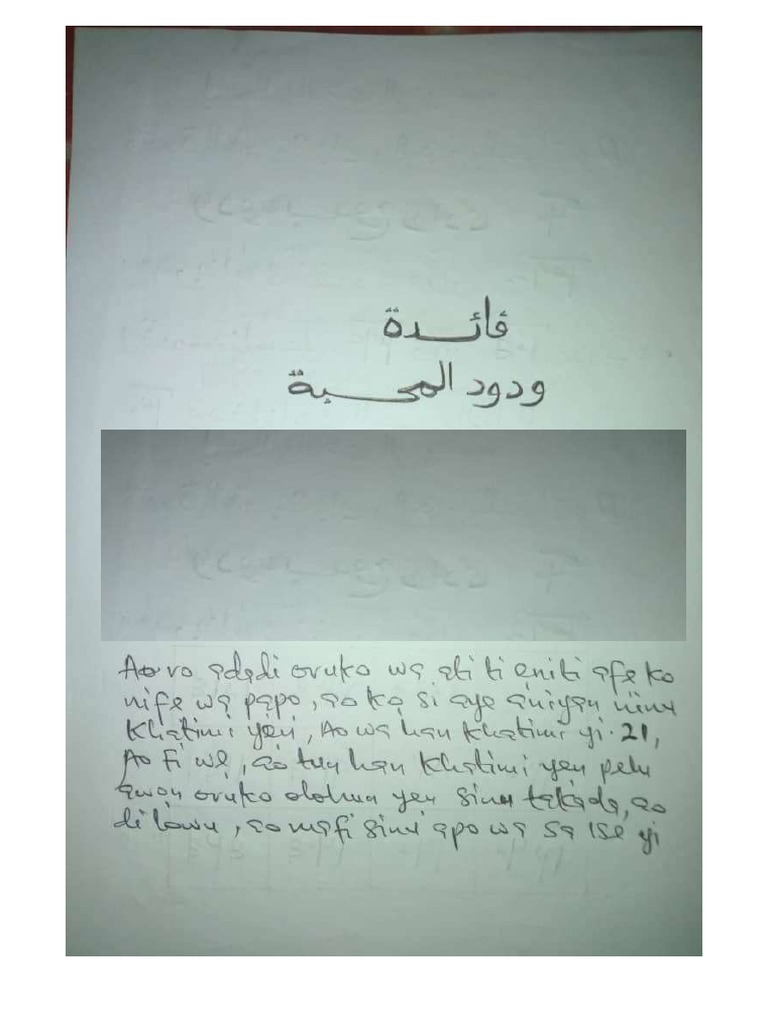 فائدة
ودود المحبة
Ao ro adadi oruko wa ati ti eniti afe ko
nife wa papo, ao ka si aye aniyan ninu
Khatimi yen, Ao wa han Khatimi yi. 21,
Ao fi we, ao tun han Khatimi yen pelu
awon oruko olohun yen sinu takada, ao
di lawu, ao mafi sinu apo wa sa ise yi